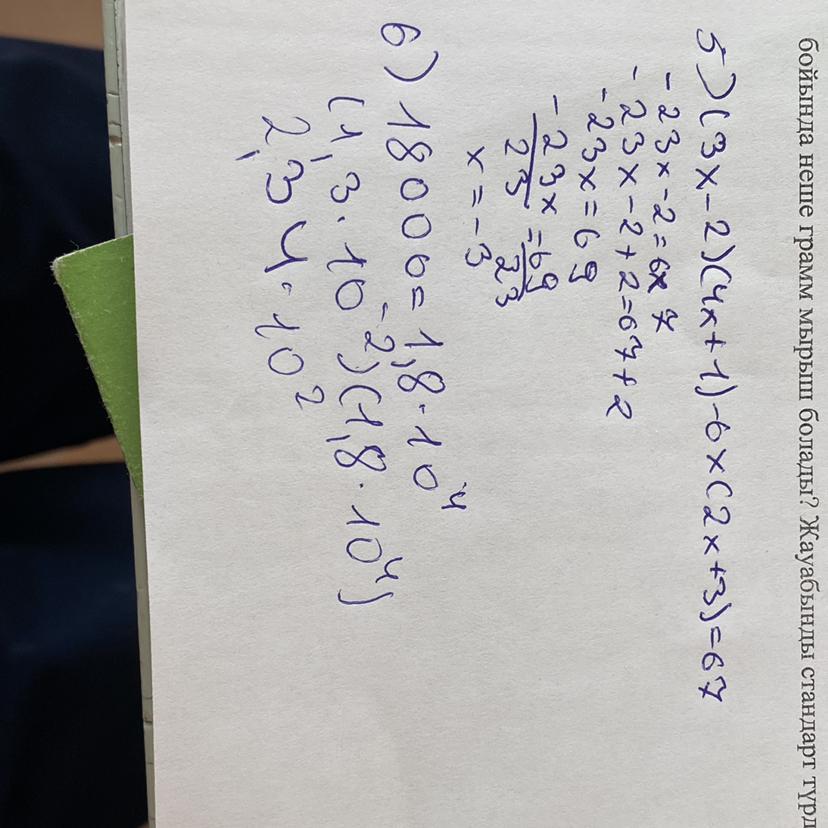 бойында неше грамм мырыш болады? Жауабыңды стандарт түрд
5) (3x-2)(4x+1)-6x(2x+3)=67
-23x-2=67
-23x-2+2=67+2
-23x=69
-23x/23=69/23
x=-3
6) 18000=1,8·10⁴
(1,3·10⁻²)(1,8·10⁴)
2,34·10²